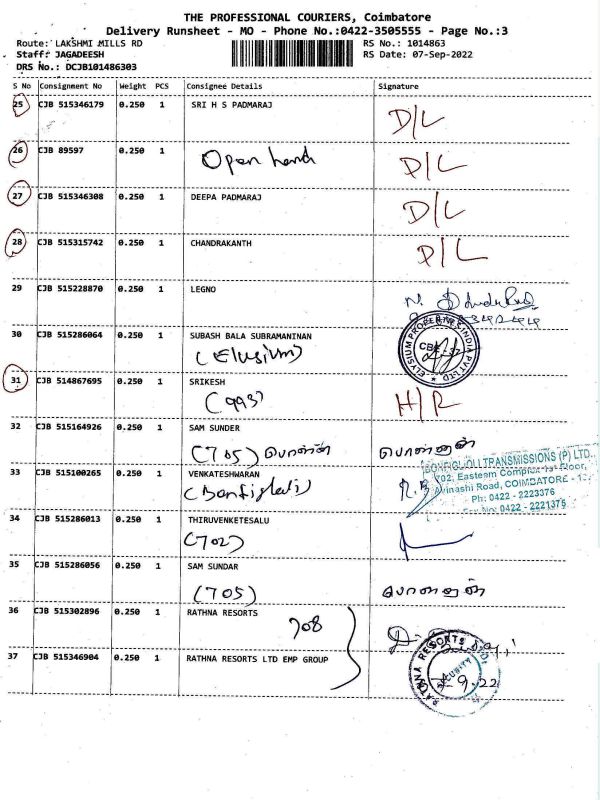 THE PROFESSIONAL COURIERS, Coimbatore
Delivery Runsheet - MO - Phone No.:0422-3505555 - Page No.:3
Route: LAKSHMI MILLS RD RS No.: 1014863
Staff: JAGADEESH RS Date: 07-Sep-2022
DRS No.: DCJB101486303
S No Consignment No Weight PCS Consignee Details Signature
25 CJB 515346179 0.250 1 SRI H S PADMARAJ D/L
26 CJB 89597 0.250 1 Open hand D/L
27 CJB 515346308 0.250 1 DEEPA PADMARAJ D/L
28 CJB 515315742 0.250 1 CHANDRAKANTH D/L
29 CJB 515228870 0.250 1 LEGNO
30 CJB 515286064 0.250 1 SUBASH BALA SUBRAMANINAN
(Elusium)
ELYSIUM PROPERTIES INDIA PVT LTD
CBE - 37
31 CJB 514867695 0.250 1 SRIKESH
(993) H/R
32 CJB 515164926 0.250 1 SAM SUNDER
(705) பொன்னன் பொன்னன்
33 CJB 515100265 0.250 1 VENKATESHWARAN
(Bonfiglioli)
BONFIGLIOLI TRANSMISSIONS (P) LTD.,
702, Eastern Complex 1st Floor,
Avinashi Road, COIMBATORE - 1
Ph: 0422 - 2223376
Fax No: 0422 - 2221375
34 CJB 515286013 0.250 1 THIRUVENKETESALU
(702)
35 CJB 515286056 0.250 1 SAM SUNDAR
(705) பொன்னன்
36 CJB 515302896 0.250 1 RATHNA RESORTS
708
37 CJB 515346904 0.250 1 RATHNA RESORTS LTD EMP GROUP
RATHNA RESORTS
SECURITY
7.9.22